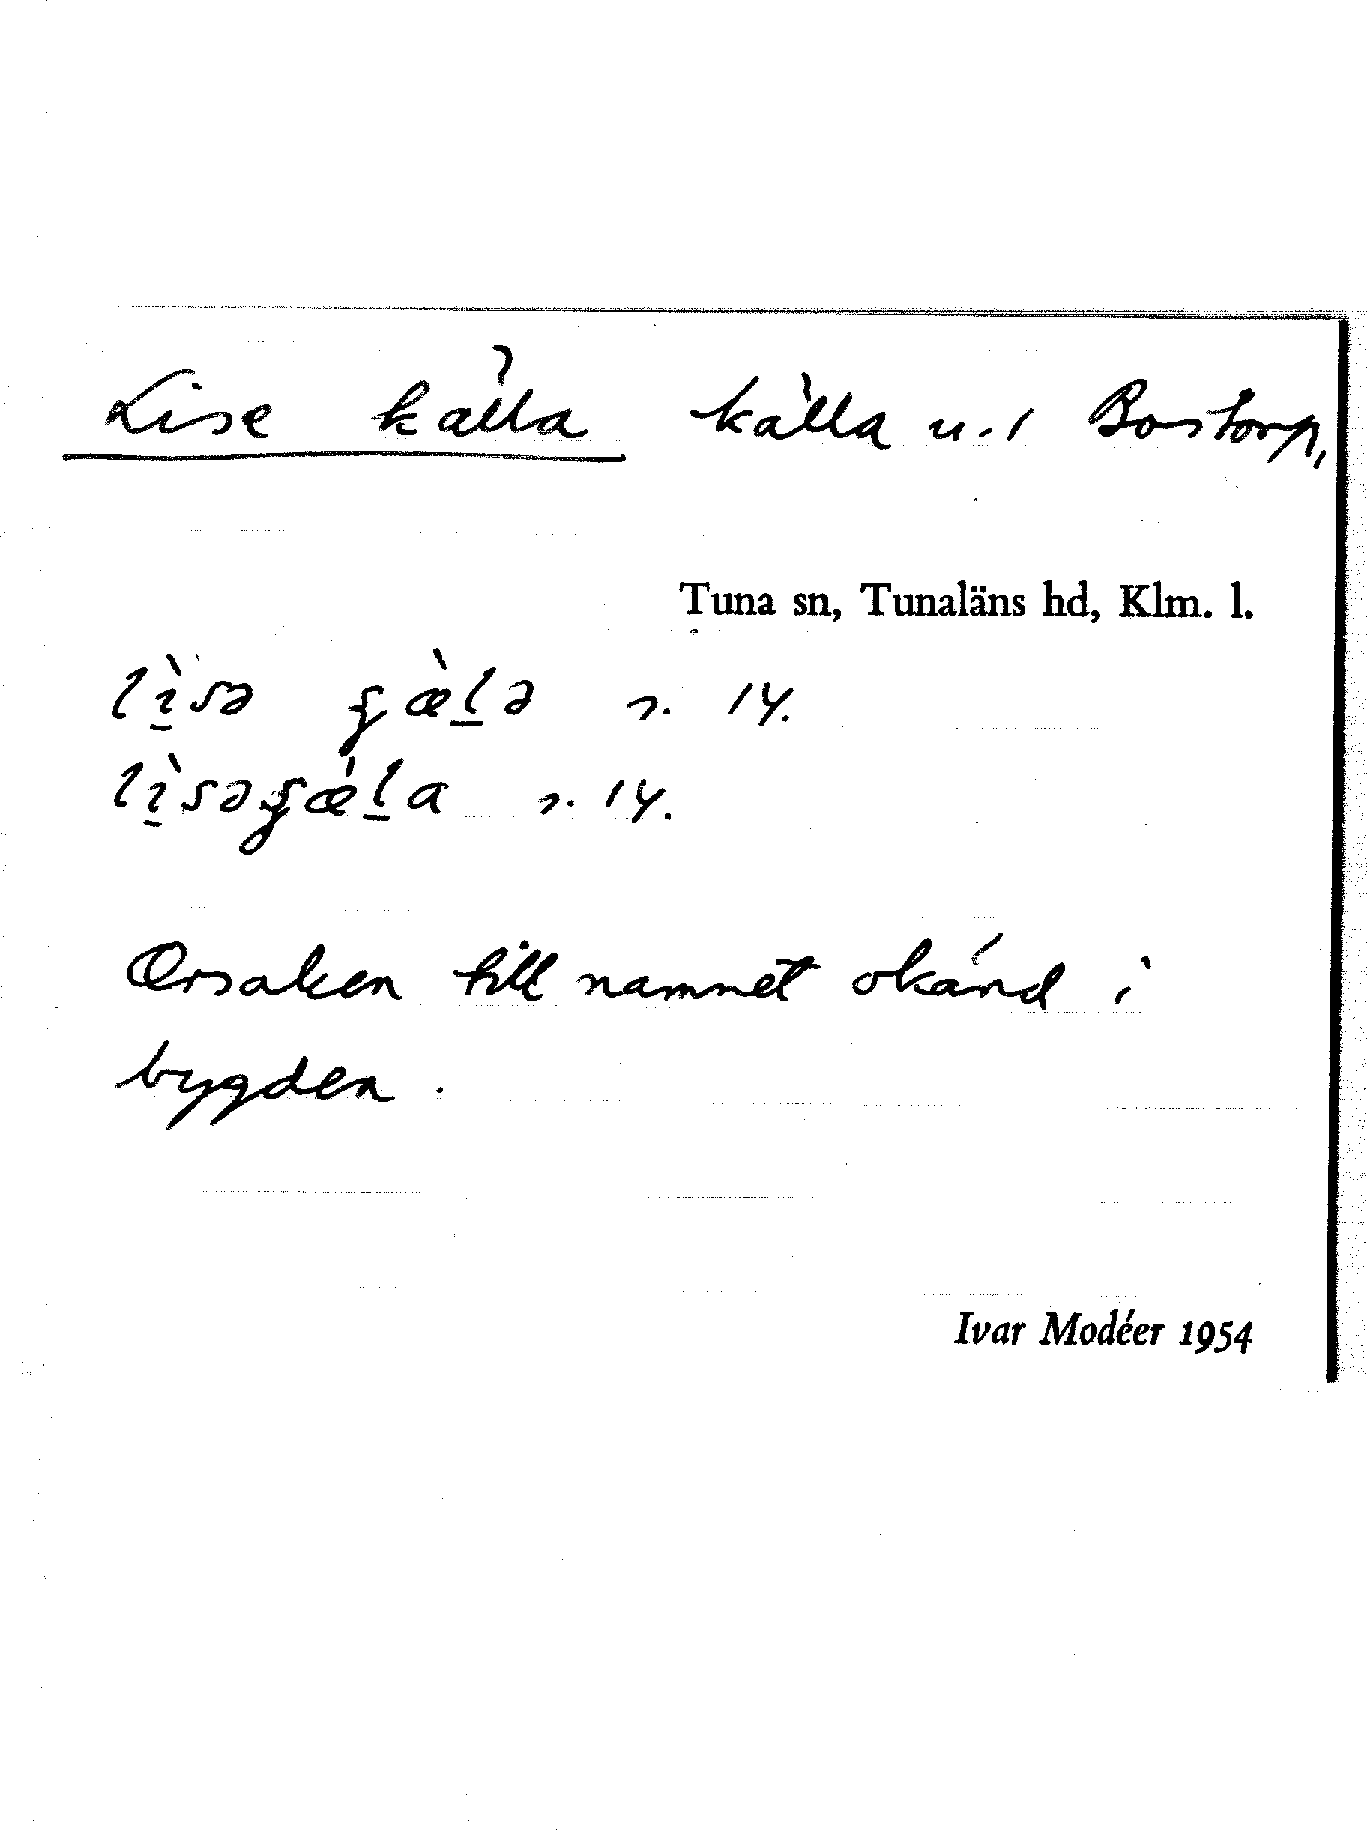 Lise källa källa u. / Bostorp,
Tuna sn, Tunaläns hd, Klm. l.
lìsə ʂæ̀lə s. 14.
lìsəʂæ̀la s. 14.
Orsaken till namnet okänd i
bygden.
Ivar Modéer 1954